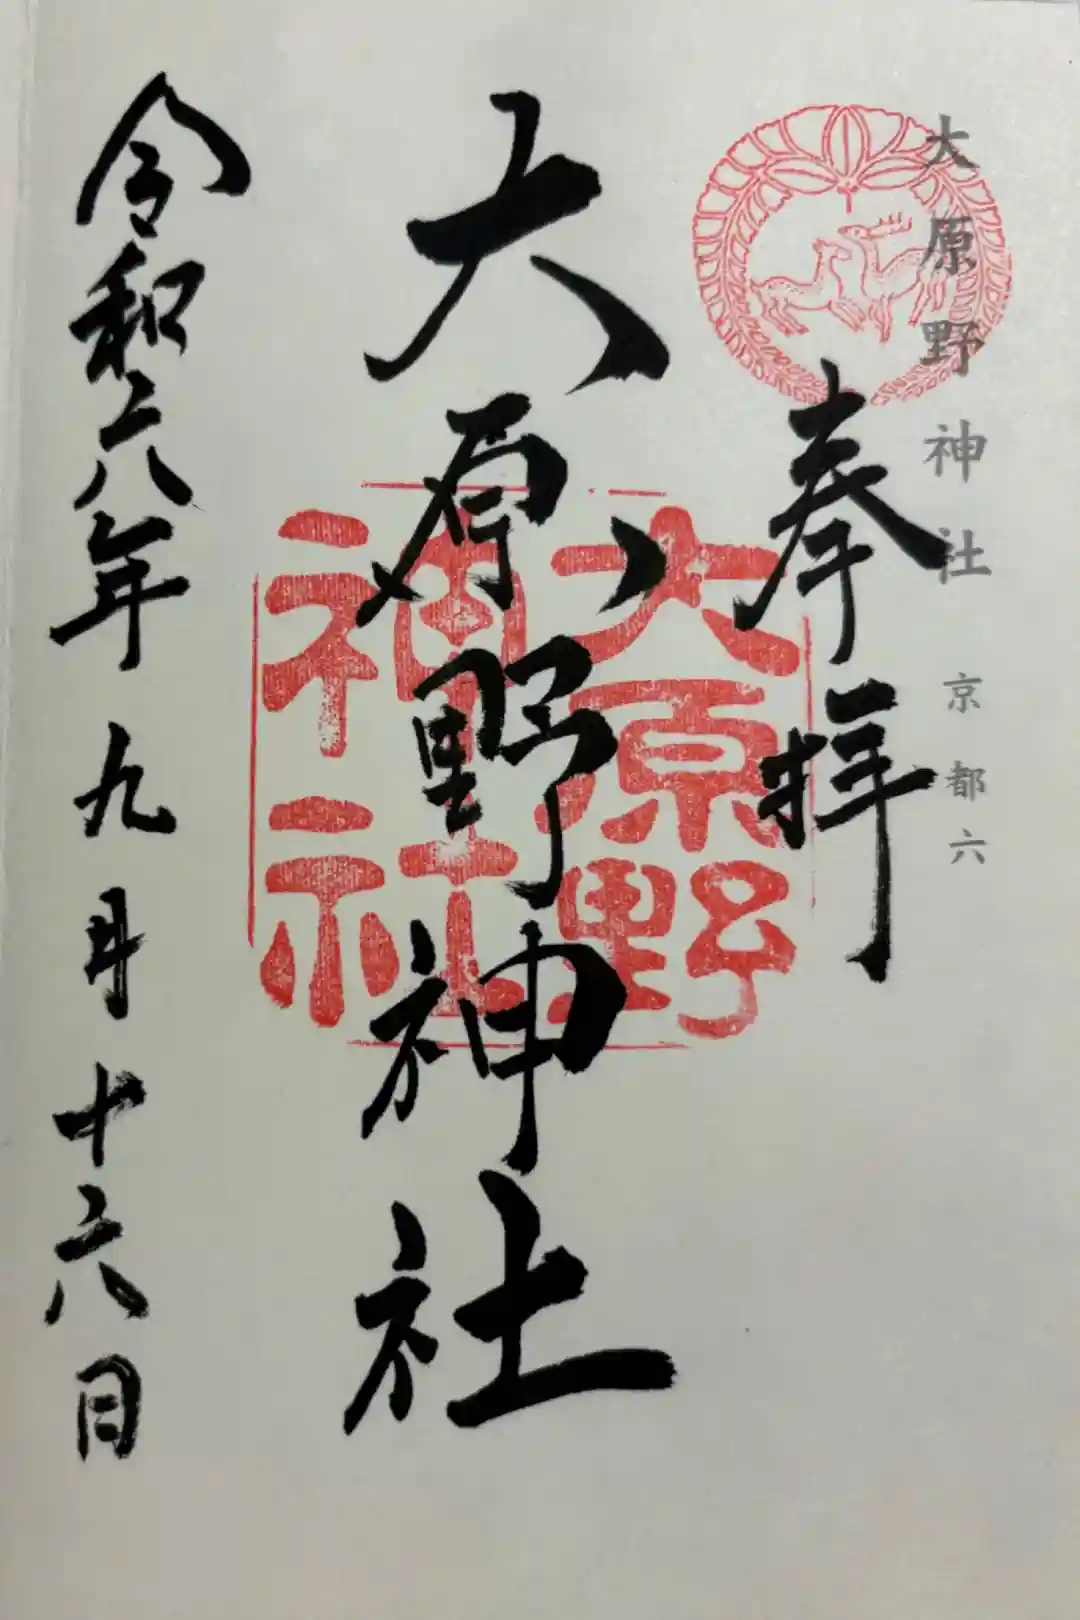 大原野神社 京都六
奉拝
大原野
神社
大原野神社
令和六年九月十六日